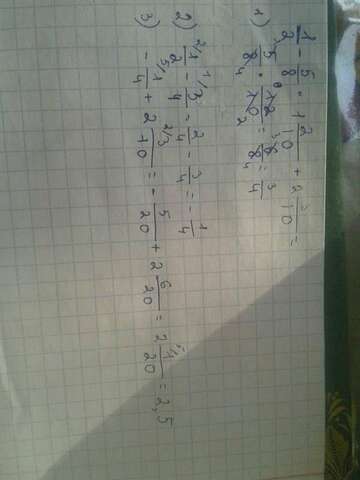 1/2 - 5/8 · 1 2/10 + 2 3/10 =
1) 5/8 · 12/10 = 6/8 = 3/4
2) 1/2 - 3/4 = 2/4 - 3/4 = - 1/4
3) - 1/4 + 2 3/10 = - 5/20 + 2 6/20 = 2 1/20 = 2,5